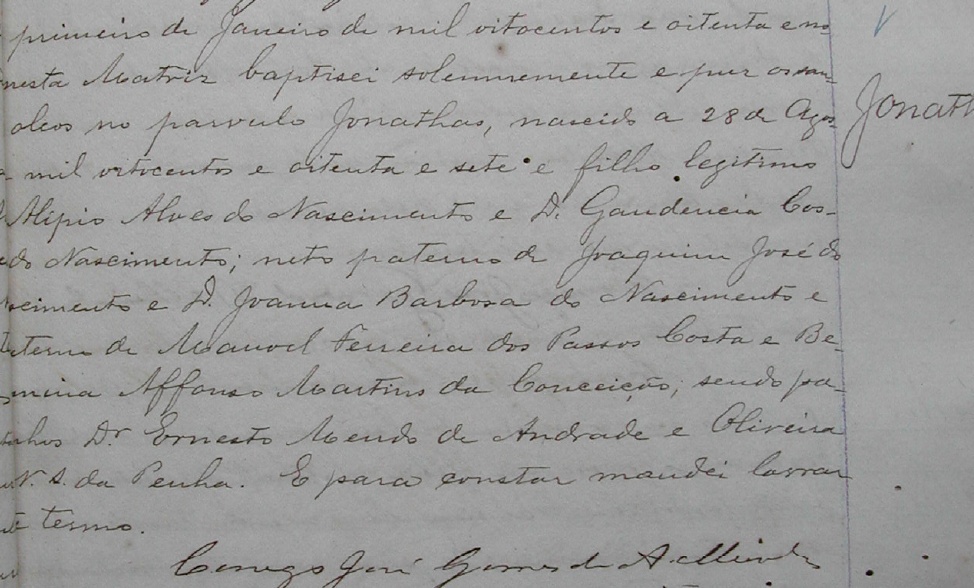 primeiro de Janeiro de mil oitocentos e oitenta e no
nesta Matriz baptisei solemnemente e puz os san-
oleos no parvulo Jonathas, nascido a 28 de Agos-
mil oitocentos e oitenta e sete e filho legitimo
Alipio Alves do Nascimento e D. Gaudencia Cos-
do Nascimento; neto paterno de Joaquim José do
scimento e D. Joanna Barbosa do Nascimento e
terno de Manoel Ferreira dos Passos Costa e Be-
mira Affonso Martins da Conceição; sendo pa-
inhos Dr Ernesto Mendo de Andrade e Oliveira
N. S. da Penha. E para constar mandei lavrar
termo.
Conego José Gomes de
Jonath